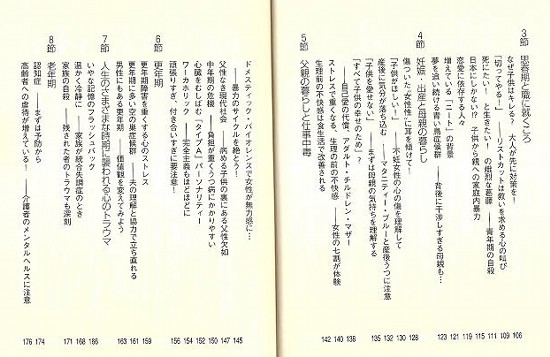 3節 思春期と職に就くころ
なぜ子供はキレる？ 大人が先に対策を！ 106
「切ってやる！」――リストカットは救いを求める心の叫び 109
死にたい！ と生きたい！ の熾烈な葛藤――青年期の自殺 111
日本にしかない!? 子供から親への家庭内暴力 115
恋愛に依存する人々 119
増えている「ニート」の背景 121
夢を追い続ける青い鳥症候群――背後に干渉しすぎる母親も… 123
4節 妊娠・出産と母親の暮らし
傷ついた女性性に耳を傾けて！ 128
「子供がほしい！」――不妊症女性の心の傷を理解して 130
産後に気分が落ち込む――マタニティー・ブルーと産後うつに注意 132
「子供を愛せない」――まずは母親の気持ちを理解する 135
「すべて子供の幸せのため」？
――自己愛の代償、アダルト・チルドレン・マザー 138
ストレスで重くなる、生理の前の不快感――女性の七割が体験 140
生理前の不快感は食生活で改善される 142
5節 父親の暮らしと仕事中毒
ドメスティック・バイオレンスで女性が無力感に…
――暴力のサイクルを絶とう 145
父性なき現代社会――病める子供の裏にある父性欠如 147
中年期の危機――負担が重くうつ病にかかりやすい 149
心臓をむしばむ「タイプA」パーソナリティー 152
ワーカホリック――完全主義もほどほどに 154
頑張りすぎ、付き合いすぎに要注意！ 156
6節 更年期
更年期障害を重くする心のストレス 159
更年期に多い空の巣症候群――夫の理解と協力で立ち直れる 161
男性にもある更年期――価値観を変えてみよう 163
7節 人生のさまざまな時期に襲われる心のトラウマ
いやな記憶のフラッシュバック 166
温かく冷静に――家族が統合失調症のとき 168
家族の自殺――残された者のトラウマも深刻 171
8節 老年期
認知症――まずは予防から 174
高齢者への虐待が増えている！――介護者のメンタルヘルスに注意 176